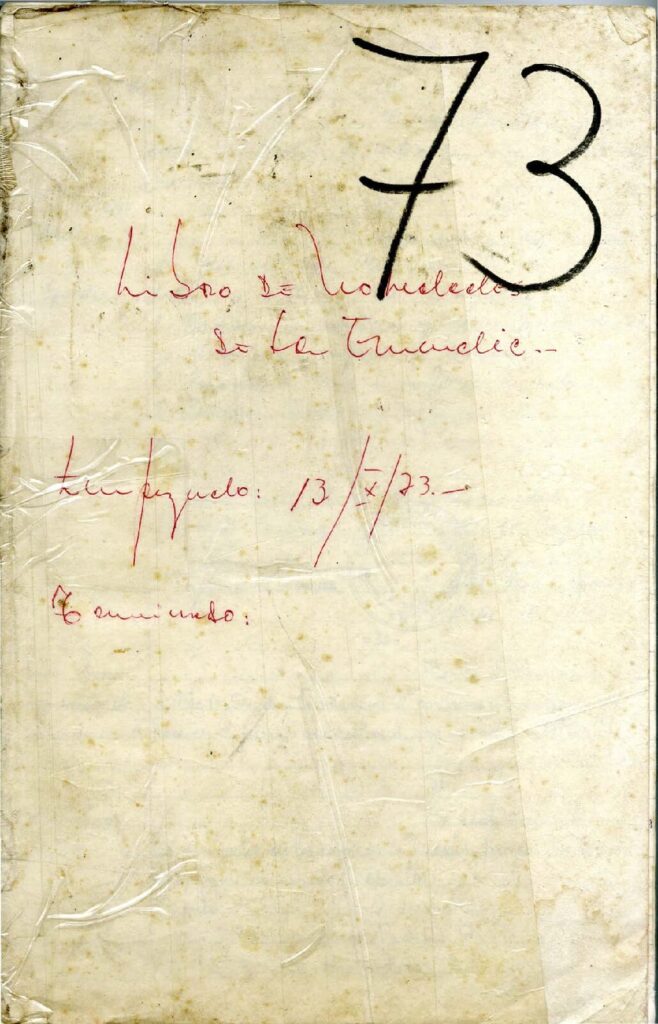 73
Libro de Novedades
de la Guardia.-
Empezado: 13/X/73.-
Terminado: